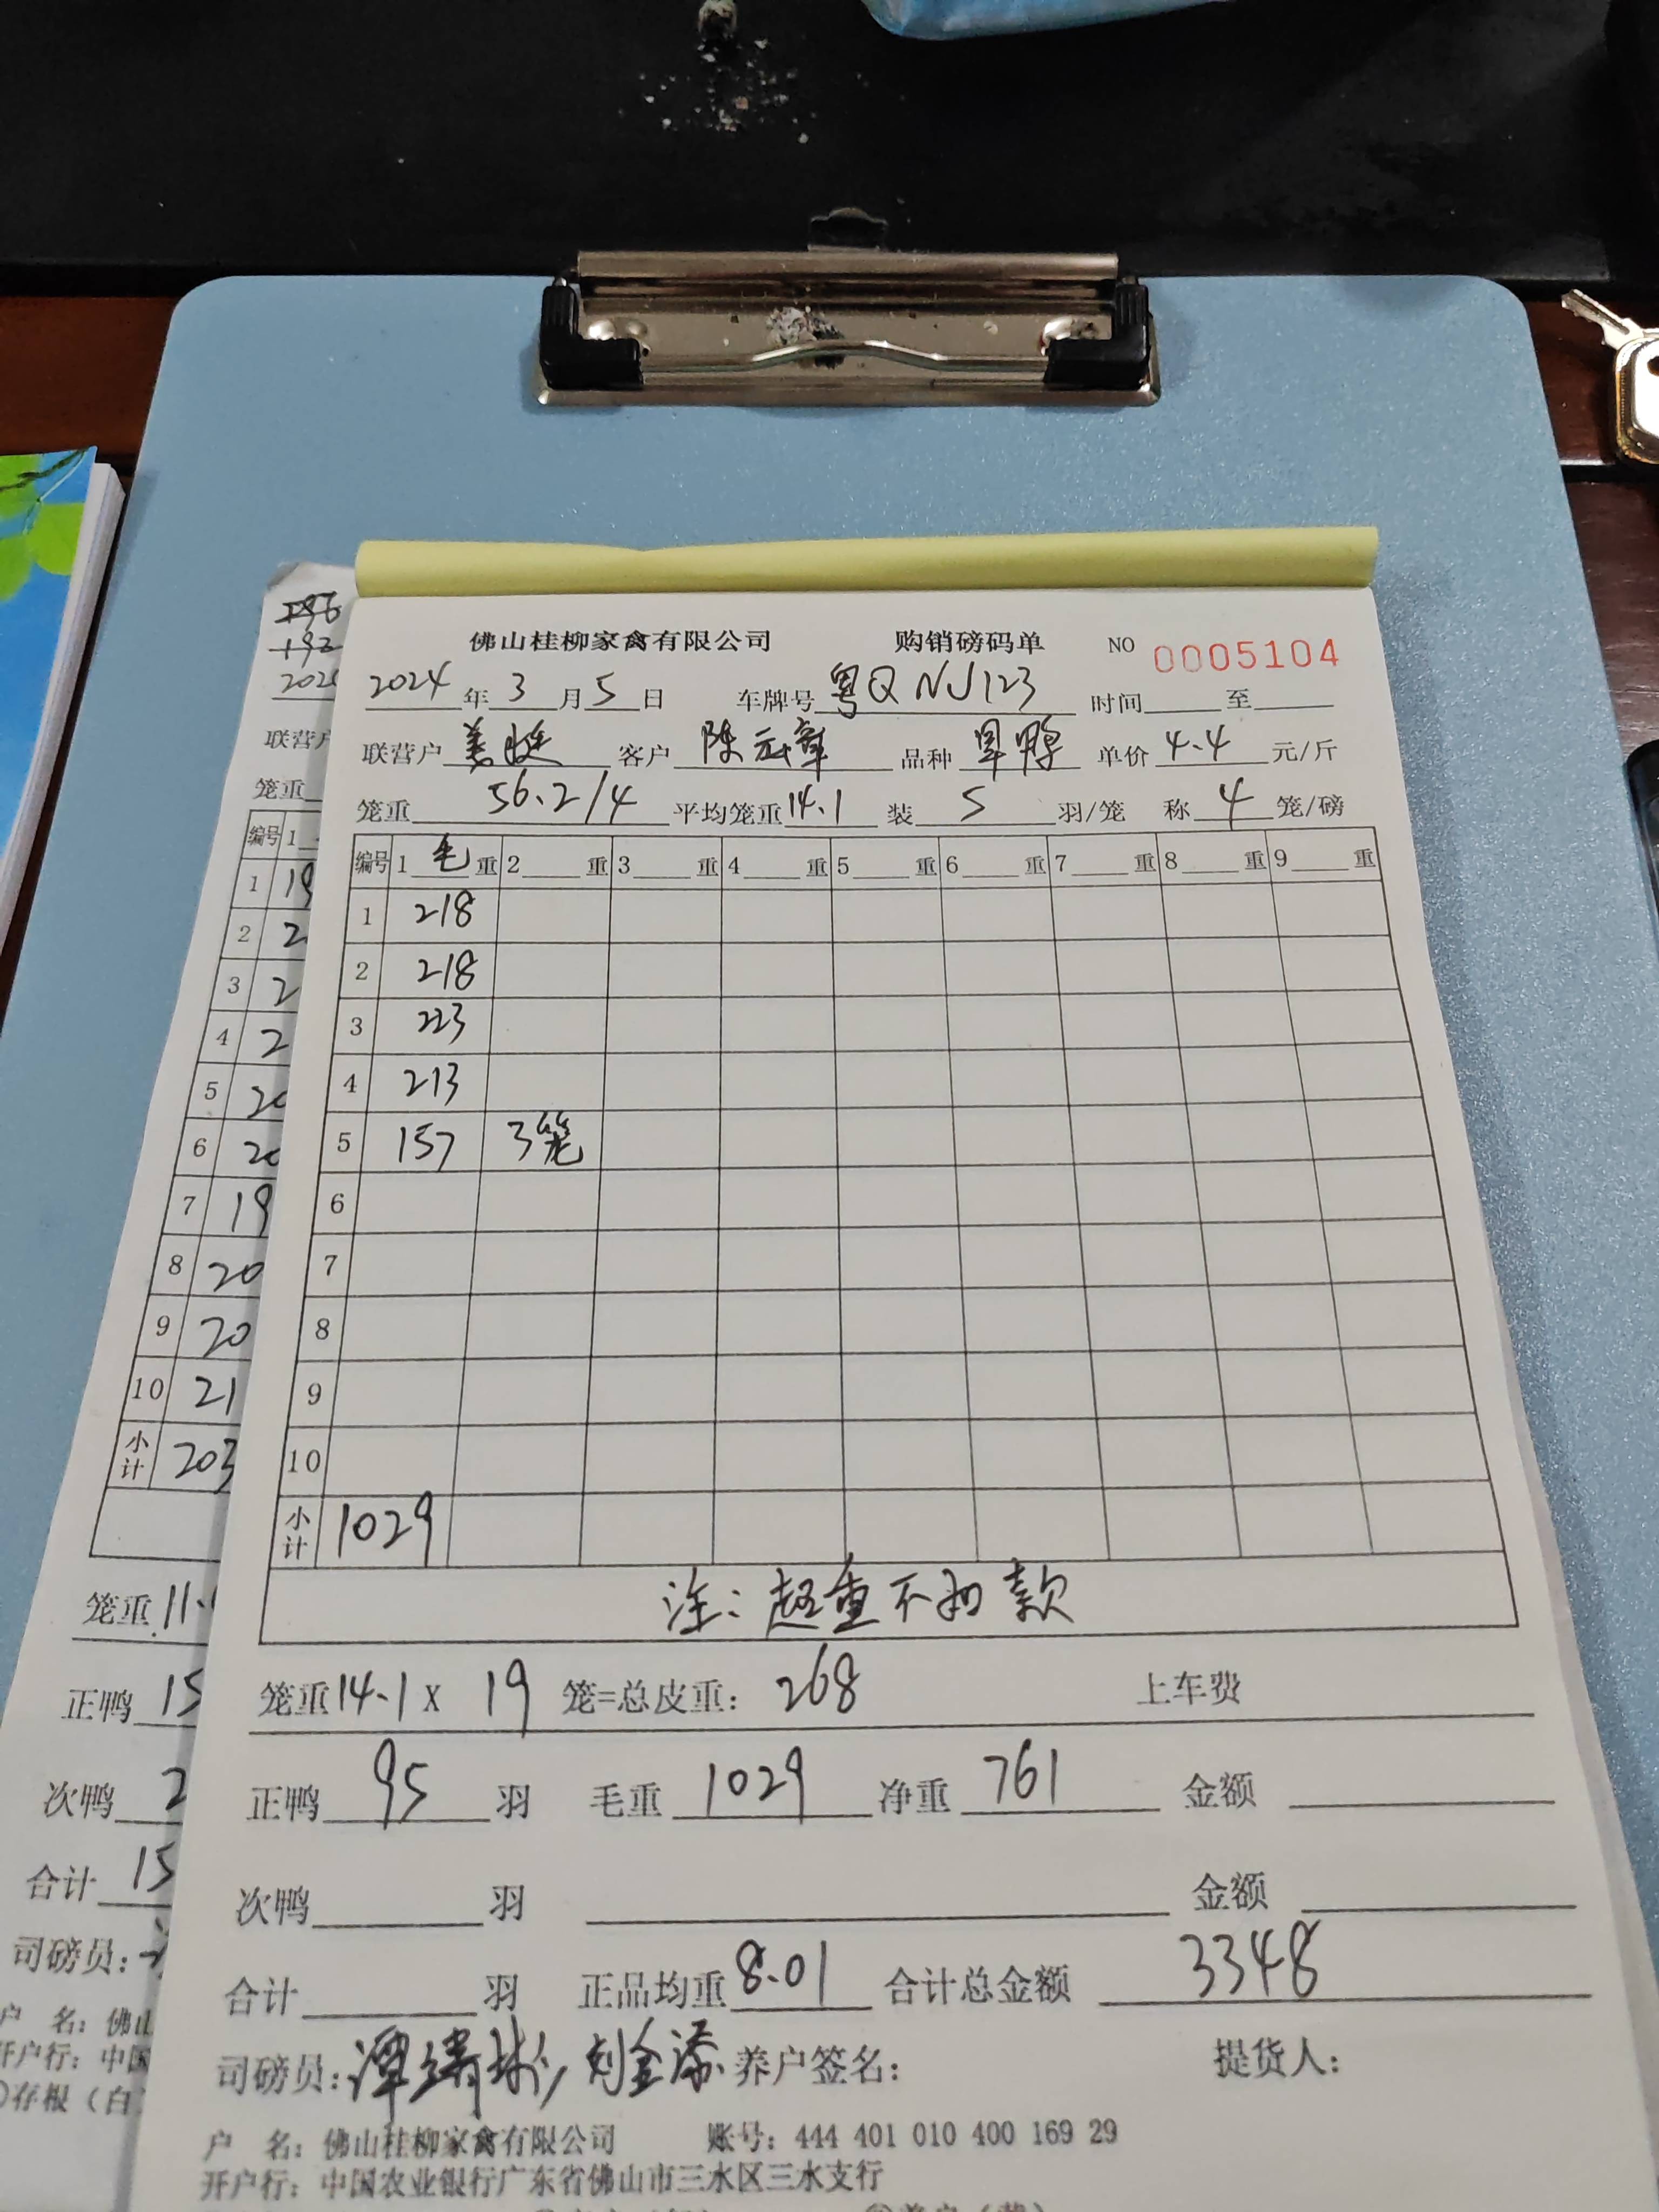 佛山桂柳家禽有限公司 购销磅码单 NO 0005104
2024年3月5日 车牌号粤QNJ123 时间 至
联营户 客户 陈云章 品种 旱鸭 单价 4.4 元/斤
笼重 56.2/4 平均笼重 14.1 装 5 羽/笼 称 4 笼/磅
编号 1 毛 重 2 重 3 重 4 重 5 重 6 重 7 重 8 重 9 重
1 218
2 218
3 223
4 213
5 157 3笼
6
7
8
9
10
小计 1029
注:超重不扣款
笼重14.1X 19 笼=总皮重: 268 上车费
正鸭 95 羽 毛重 1029 净重 761 金额
次鸭 羽 金额
合计 羽 正品均重 8.01 合计总金额 3348
司磅员: 刘金添 养户签名: 提货人:
户 名: 佛山桂柳家禽有限公司 账号: 444 401 010 400 169 29
开户行: 中国农业银行广东省佛山市三水区三水支行
196
193
202
联营户
笼重
编号 1
1 19
2 2
3 2
4 2
5 20
6 20
7 19
8 20
9 20
10 21
小计 203
笼重 11.
正鸭 15
次鸭 2
合计 15
司磅员:
户 名: 佛山
开户行: 中国
存根(白